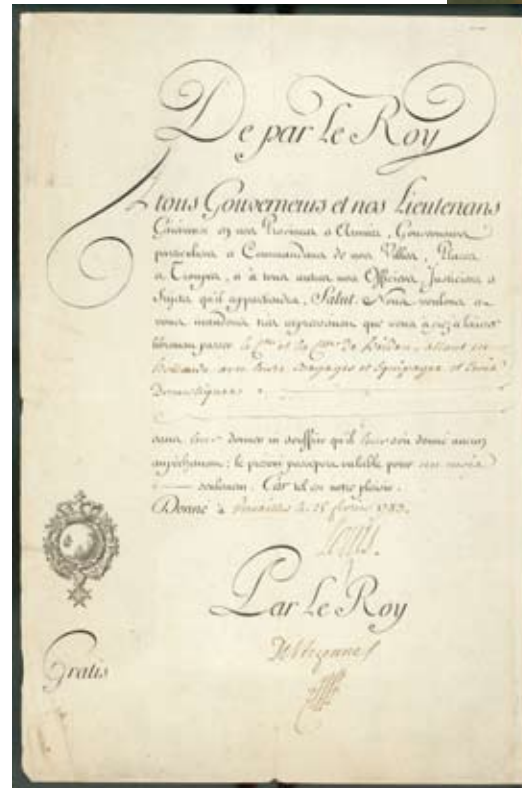 De par Le Roy
A tous Gouverneurs et nos Lieutenans
Généraux en nos Provinces et Armées, Gouverneurs
particuliers et Commandans de nos Villes, Places
et Troupes, et à tous autres nos Officiers, Justiciers et
Sujets qu'il appartiendra, Salut. Nous voulons et
vous mandons très expressément que vous ayez à laisser
librement passer le et la De allant en
Hollande avec leurs Bagages et Equipages et trois
Domestiques
sans leur donner ni souffrir qu'il leur soit donné aucun
empêchement; le présent passeport valable pour un mois
seulement. Car tel est notre plaisir.
Donné à Versailles le février 1783.
Louis.
Par Le Roy
De Vergennes
Gratis